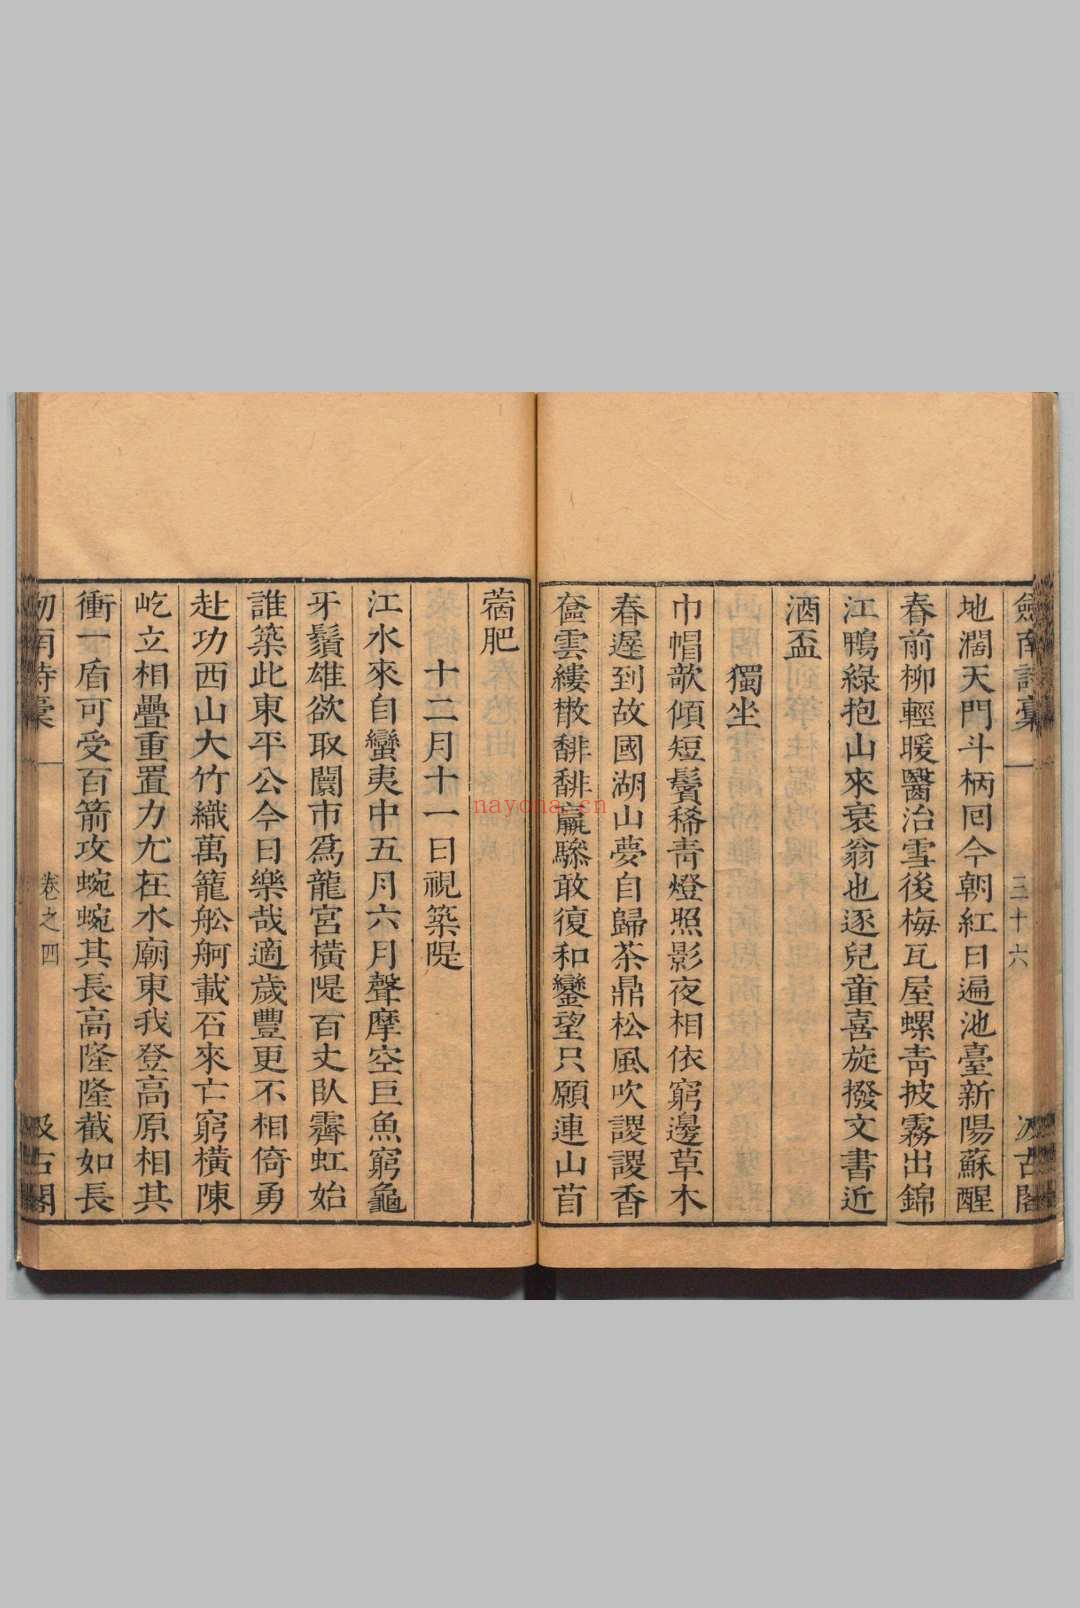 劒南詩稾 三十六 汲古閣
地濶天門斗柄囘今朝紅日遍池臺新陽蘇醒
春前柳輕暖醫治雪後梅瓦屋螺青披霧出錦
江鴨綠抱山來衰翁也逐兒童喜旋撥文書近
酒盃
獨坐
巾帽欹傾短鬢稀青燈照影夜相依窮邊草木
春遲到故國湖山夢自歸茶鼎松風吹謖謖香
奩雲縷散馡馡羸驂敢復和鑾望只願連山苜
蓿肥
十二月十一日視築隄
江水來自蠻夷中五月六月聲摩空巨魚窮龜
牙鬚雄欲取闤市爲龍宮橫隄百丈臥霽虹始
誰築此東平公今日樂哉適歲豐更不相倚勇
赴功西山大竹織萬籠舩舸載石來亡窮橫陳
屹立相疊重置力尤在水廟東我登高原相其
衝一盾可受百箭攻蜿蜿其長高隆隆截如長
劒南詩稾 卷之四 汲古閣
nayona.cn